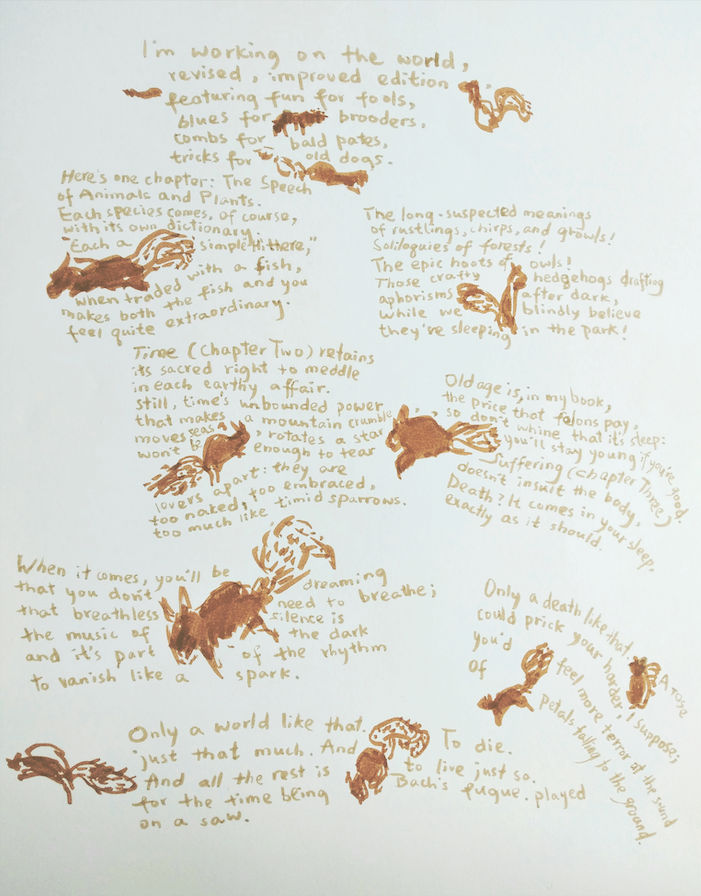 I'm working on the world,
revised, improved edition
featuring fun for fools,
blues for brooders,
combs for bald pates,
tricks for old dogs.
Here's one chapter: The Speech
of Animals and Plants.
Each species comes, of course,
with its own dictionary.
"Each a simple "Hi there,"
when traded with a fish,
makes both the fish and you
feel quite extraordinary.
The long-suspected meanings
of rustlings, chirps, and growls!
Soliloquies of forests!
The epic hoots of owls!
Those crafty hedgehogs drafting
aphorisms after dark,
while we blindly believe
they're sleeping in the park!
Time (Chapter Two) retains
its sacred right to meddle
in each earthy affair.
Still, time's unbounded power
that makes a mountain crumble,
moves seas, rotates a star
won't be enough to tear
lovers apart: they are
too naked, too embraced,
too much like timid sparrows.
Old age is, in my book,
the price that felons pay,
so don't whine that it's sleep:
you'll stay young if you're good.
Suffering (Chapter Three)
doesn't insult the body,
Death? It comes in your sleep,
exactly as it should.
When it comes, you'll be dreaming
that you don't need to breathe;
that breathless silence is
the music of the dark
and it's part of the rhythm
to vanish like a spark.
Only a death like that. A rose
could prick you harder, I suppose;
you'd feel more terror at the sound
of petals falling to the ground.
Only a world like that. To die.
just that much. And to live just so.
And all the rest is Bach's fugue. played
for the time being
on a saw.